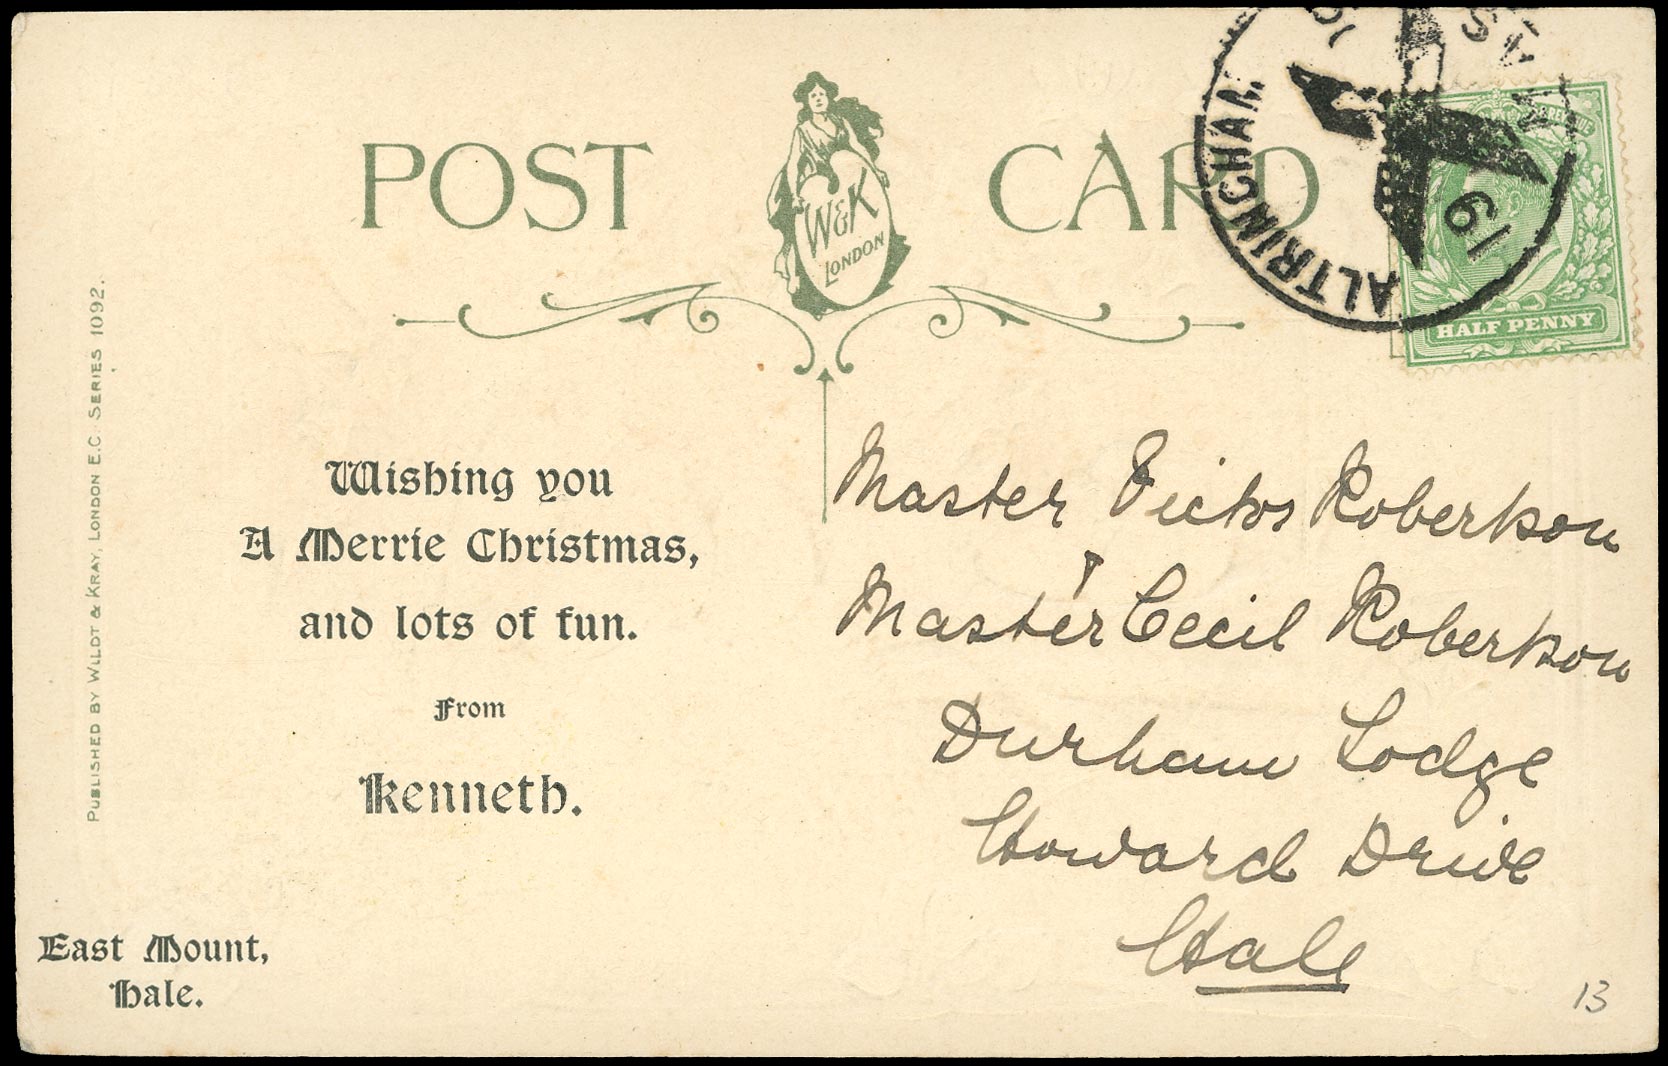 POST CARD
W&K
LONDON
ALTRINCHAM
19
HALF PENNY
PUBLISHED BY WILDT & KRAY, LONDON E.C. SERIES 1092.
Wishing you
A Merrie Christmas,
and lots of fun.
From
Kenneth.
East Mount,
Hale.
Master Victor Robertson
Master Cecil Robertson
Durham Lodge
Howard Drive
Hale
13